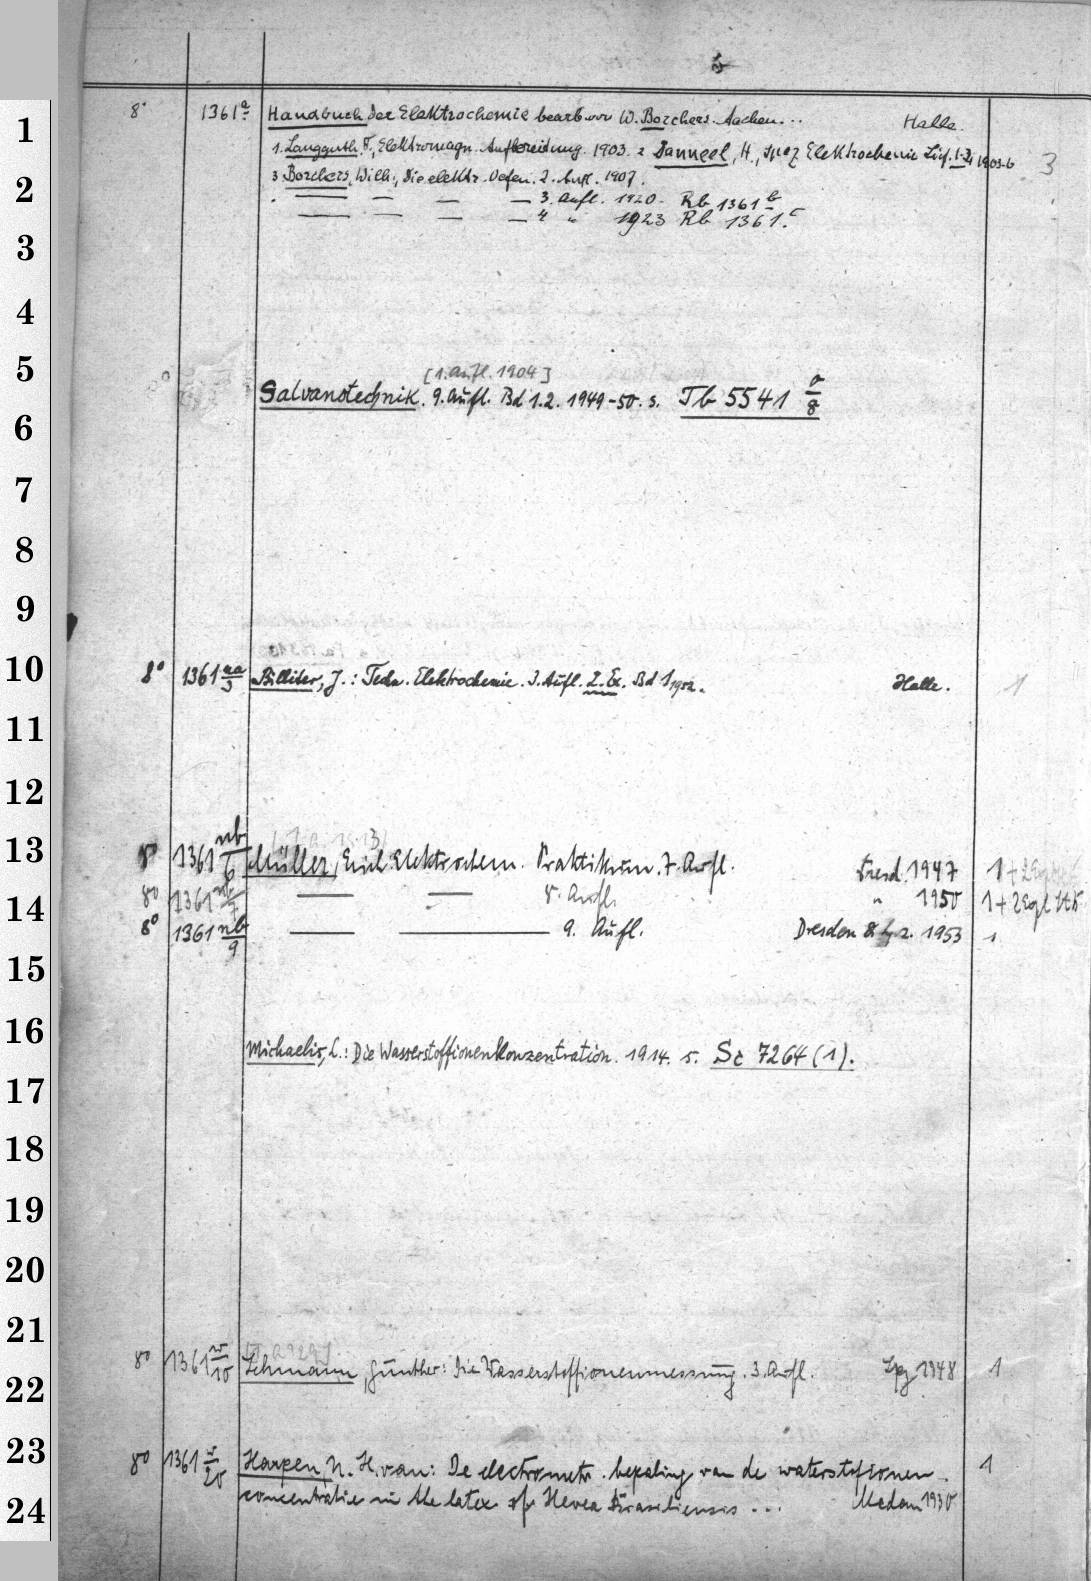 8° 1361a Handbuch der Elektrochemie bearb. von W. Borchers. Aachen... Halle.
1. Langguth, F., Elektromagn. Aufbereitung. 1903. 2 Danneel, H., spez Elektrochemie Lief. 1-3, 1903-6 3
3 Borchers, Wilh., Die elektr. Oefen. 2. Aufl. 1907.
— — — — 3. Aufl. 1920. Rb 1361b
— — — — 4 " 1923 Rb 1361c
[1. Aufl. 1904]
Galvanotechnik. 9. Aufl. Bd 1.2. 1949-50. s. Tb 5541 a/8
8° 1361 na/3 Billiter, J.: Techn. Elektrochemie. 3. Aufl. 2. Ex. Bd 1 1952. Halle. 1
8° 1361 nb/6 Müller, Erich: Elektrochem. Praktikum. 7. Aufl. Dresd. 1947 1 +
8° 1361 nb/7 — — 8. Aufl. " 1950 1 +
8° 1361 nb/9 — — 9. Aufl. Dresden & Lpz. 1953 1
Michaelis, L.: Die Wasserstoffionenkonzentration. 1914. s. Sc 7264 (1).
8° 1361 /10 Lehmann, Günther: Die Wasserstoffionenmessung. 3. Aufl. Lpz 1948 1
8° 1361 /20 Harpen, N. H. van: De electrometr. bepaling van de waterstofionen- 1
concentratie in de latex of Hevea Brasiliensis ... Medan 1930
1
2
3
4
5
6
7
8
9
10
11
12
13
14
15
16
17
18
19
20
21
22
23
24